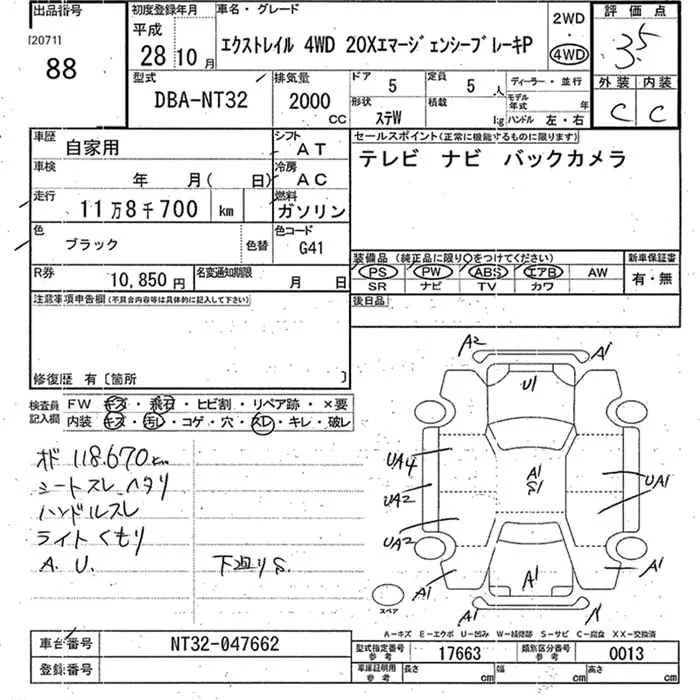 出品番号
[20711
88
初度登録年月
平成
28 10 月
車名・グレード
エクストレイル 4WD 20XエマージェンシーブレーキP
2WD
・
4WD
評価点
3.5
外装 内装
C C
型式
DBA-NT32
排気量
2000
CC
ドア
5
定員
5 人
形状
ステW
積載
kg
ディーラー・並行
モデル年式 年
ハンドル 左・右
車歴
自家用
シフト
AT
車検
年 月( 日)
冷房
AC
走行
11万8千700 km
燃料
ガソリン
色
ブラック
色替
色コード
G41
セールスポイント(正常に機能するものに限ります)
テレビ ナビ バックカメラ
装備品 (純正品に限り○をつけてください)
新車保証書
PS PW ABS エアB AW
有・無
SR ナビ TV カワ
後日品
R券
10,850円
名変通知期限
月 日
注意事項申告欄(不具合内容等は具体的に記入して下さい)
修復歴 有〔箇所 〕
検査員記入欄
FW キズ・飛石・ヒビ割・リペア跡・×要
内装 キズ・汚レ・コゲ・穴・スレ・キレ・破レ
オド 118.670km
シートスレ ヘタリ
ハンドルスレ
ライトくもり
A. U. 下廻りS.
A2 A1
U1
UA4
A1
S1
UA1
UA2
UA2
A1
A1
A1
スペア
A-キズ E-エクボ U-凹み W-補修跡 S-サビ C-腐食 XX-交換済
車台番号
NT32-047662
登録番号
型式指定番号
参考
17663
類別区分番号
参考
0013
車庫証明用
参考
長さ cm
幅 cm
高さ cm